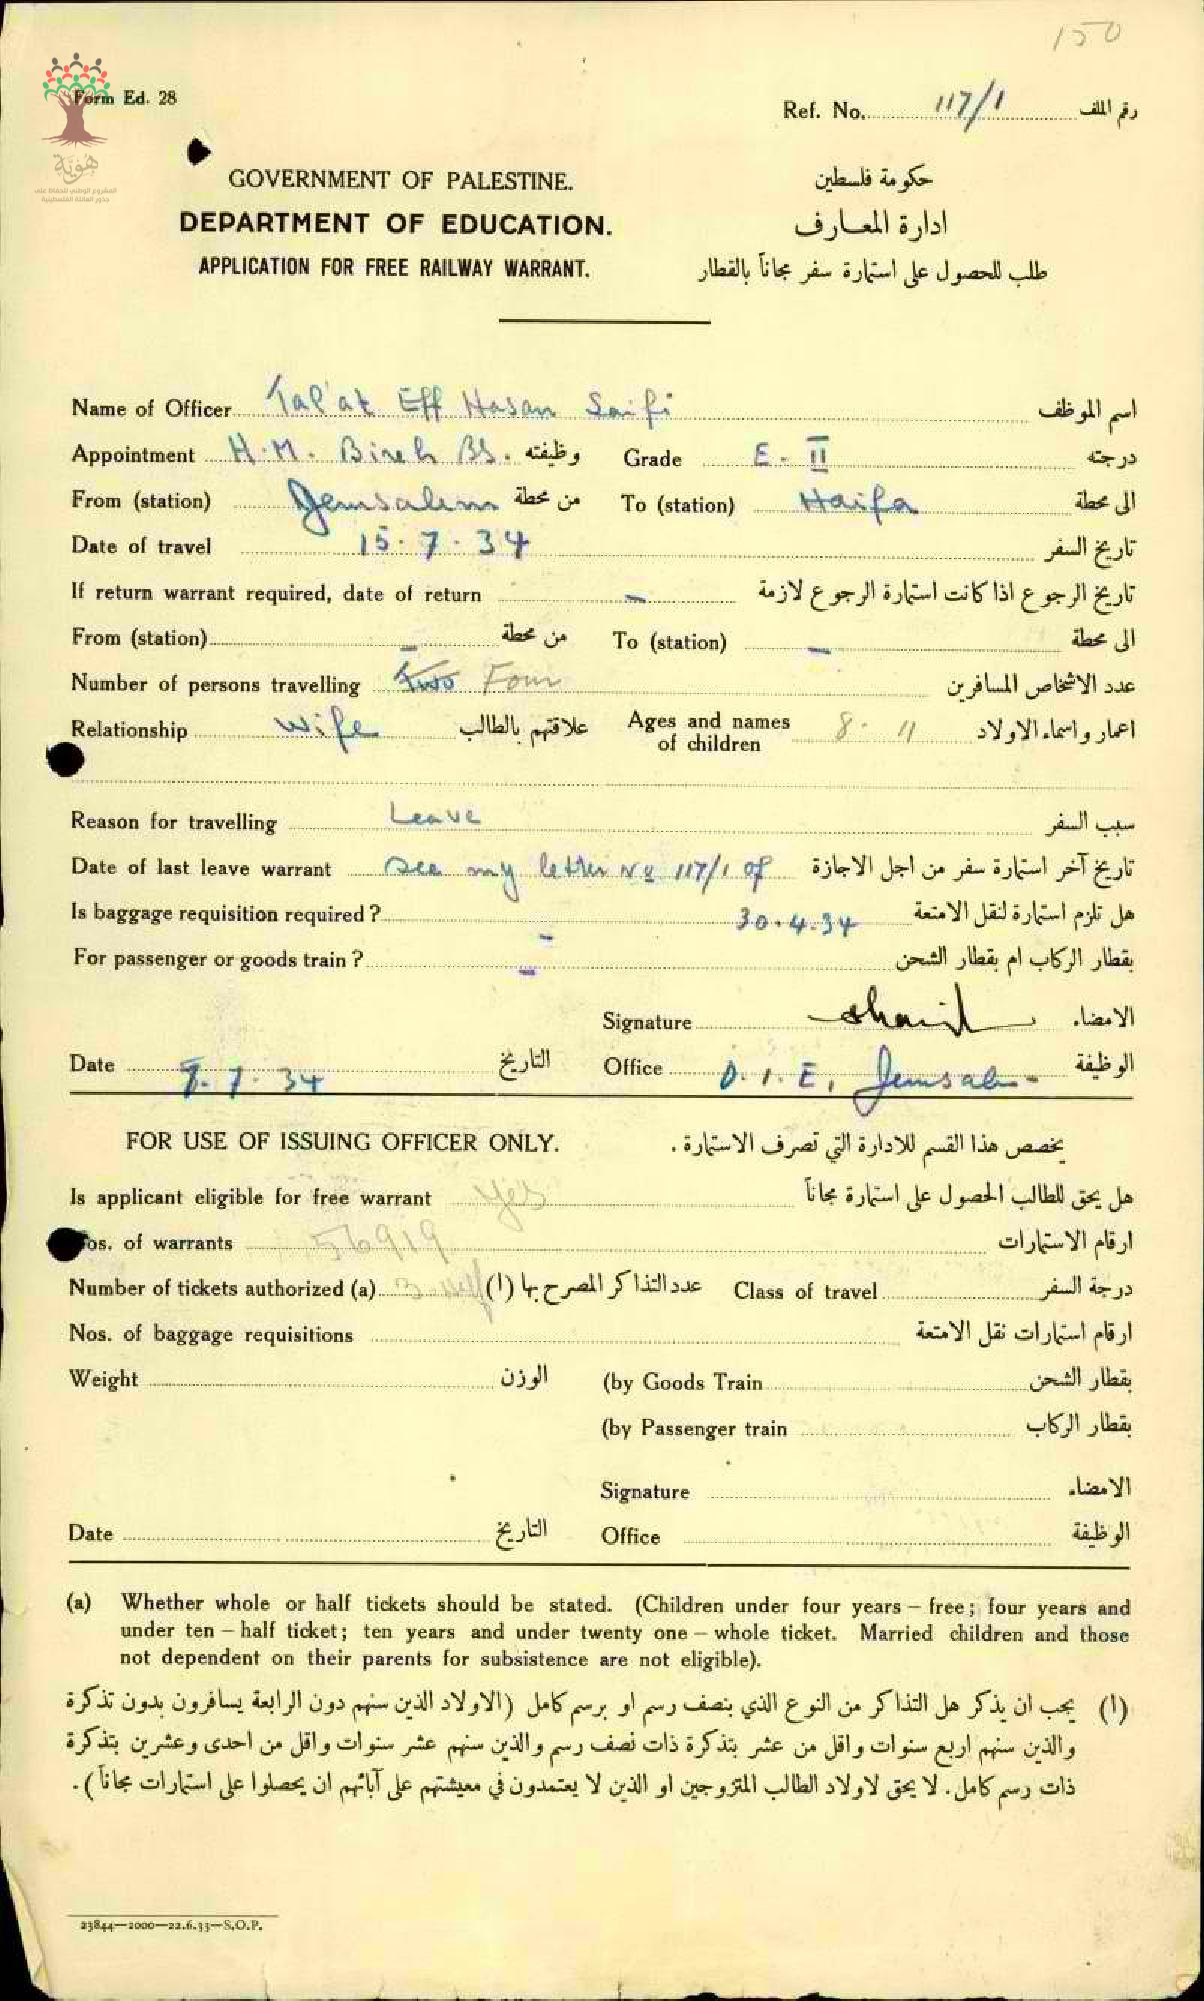 150
Form Ed. 28
Ref. No. 117/1 رقم الملف
هوية
المشروع الوطني للحفاظ على
جذور العائلة الفلسطينية
GOVERNMENT OF PALESTINE. حكومة فلسطين
DEPARTMENT OF EDUCATION. ادارة المعارف
APPLICATION FOR FREE RAILWAY WARRANT. طلب للحصول على استمارة سفر مجاناً بالقطار
Name of Officer Tal'at Eff Hasan Saifi اسم الموظف
Appointment H.M. Bireh BS. وظيفته Grade E. II درجته
From (station) Jerusalem من محطة To (station) Haifa الى محطة
Date of travel 15.7.34 تاريخ السفر
If return warrant required, date of return – تاريخ الرجوع اذا كانت استمارة الرجوع لازمة
From (station) – من محطة To (station) – الى محطة
Number of persons travelling Two Four عدد الاشخاص المسافرين
Relationship Wife علاقتهم بالطالب Ages and names of children 8. 11 اعمار واسماء الاولاد
Reason for travelling Leave سبب السفر
Date of last leave warrant See my letter No 117/1 of تاريخ آخر استمارة سفر من اجل الاجازة
Is baggage requisition required? – 30.4.34 هل تلزم استمارة لنقل الامتعة
For passenger or goods train? – بقطار الركاب ام بقطار الشحن
Signature الامضاء
Date 7.7.34 التاريخ Office D.I.E, Jerusalem الوظيفة
FOR USE OF ISSUING OFFICER ONLY. يخصص هذا القسم للادارة التي تصرف الاستمارة .
Is applicant eligible for free warrant yes هل يحق للطالب الحصول على استمارة مجاناً
os. of warrants 56919 ارقام الاستمارات
Number of tickets authorized (a) 3 عدد التذاكر المصرح بها (ا) Class of travel درجة السفر
Nos. of baggage requisitions ارقام استمارات نقل الامتعة
Weight الوزن (by Goods Train بقطار الشحن
(by Passenger train بقطار الركاب
Signature الامضاء
Date التاريخ Office الوظيفة
(a) Whether whole or half tickets should be stated. (Children under four years – free; four years and
under ten – half ticket; ten years and under twenty one – whole ticket. Married children and those
not dependent on their parents for subsistence are not eligible).
(ا) يجب ان يذكر هل التذاكر من النوع الذي بنصف رسم او برسم كامل (الاولاد الذين سنهم دون الرابعة يسافرون بدون تذكرة
والذين سنهم اربع سنوات واقل من عشر بتذكرة ذات نصف رسم والذين سنهم عشر سنوات واقل من احدى وعشرين بتذكرة
ذات رسم كامل. لا يحق لاولاد الطالب المتزوجين او الذين لا يعتمدون في معيشتهم على آبائهم ان يحصلوا على استمارات مجاناً).
23844—2000—22.6.33—S.O.P.